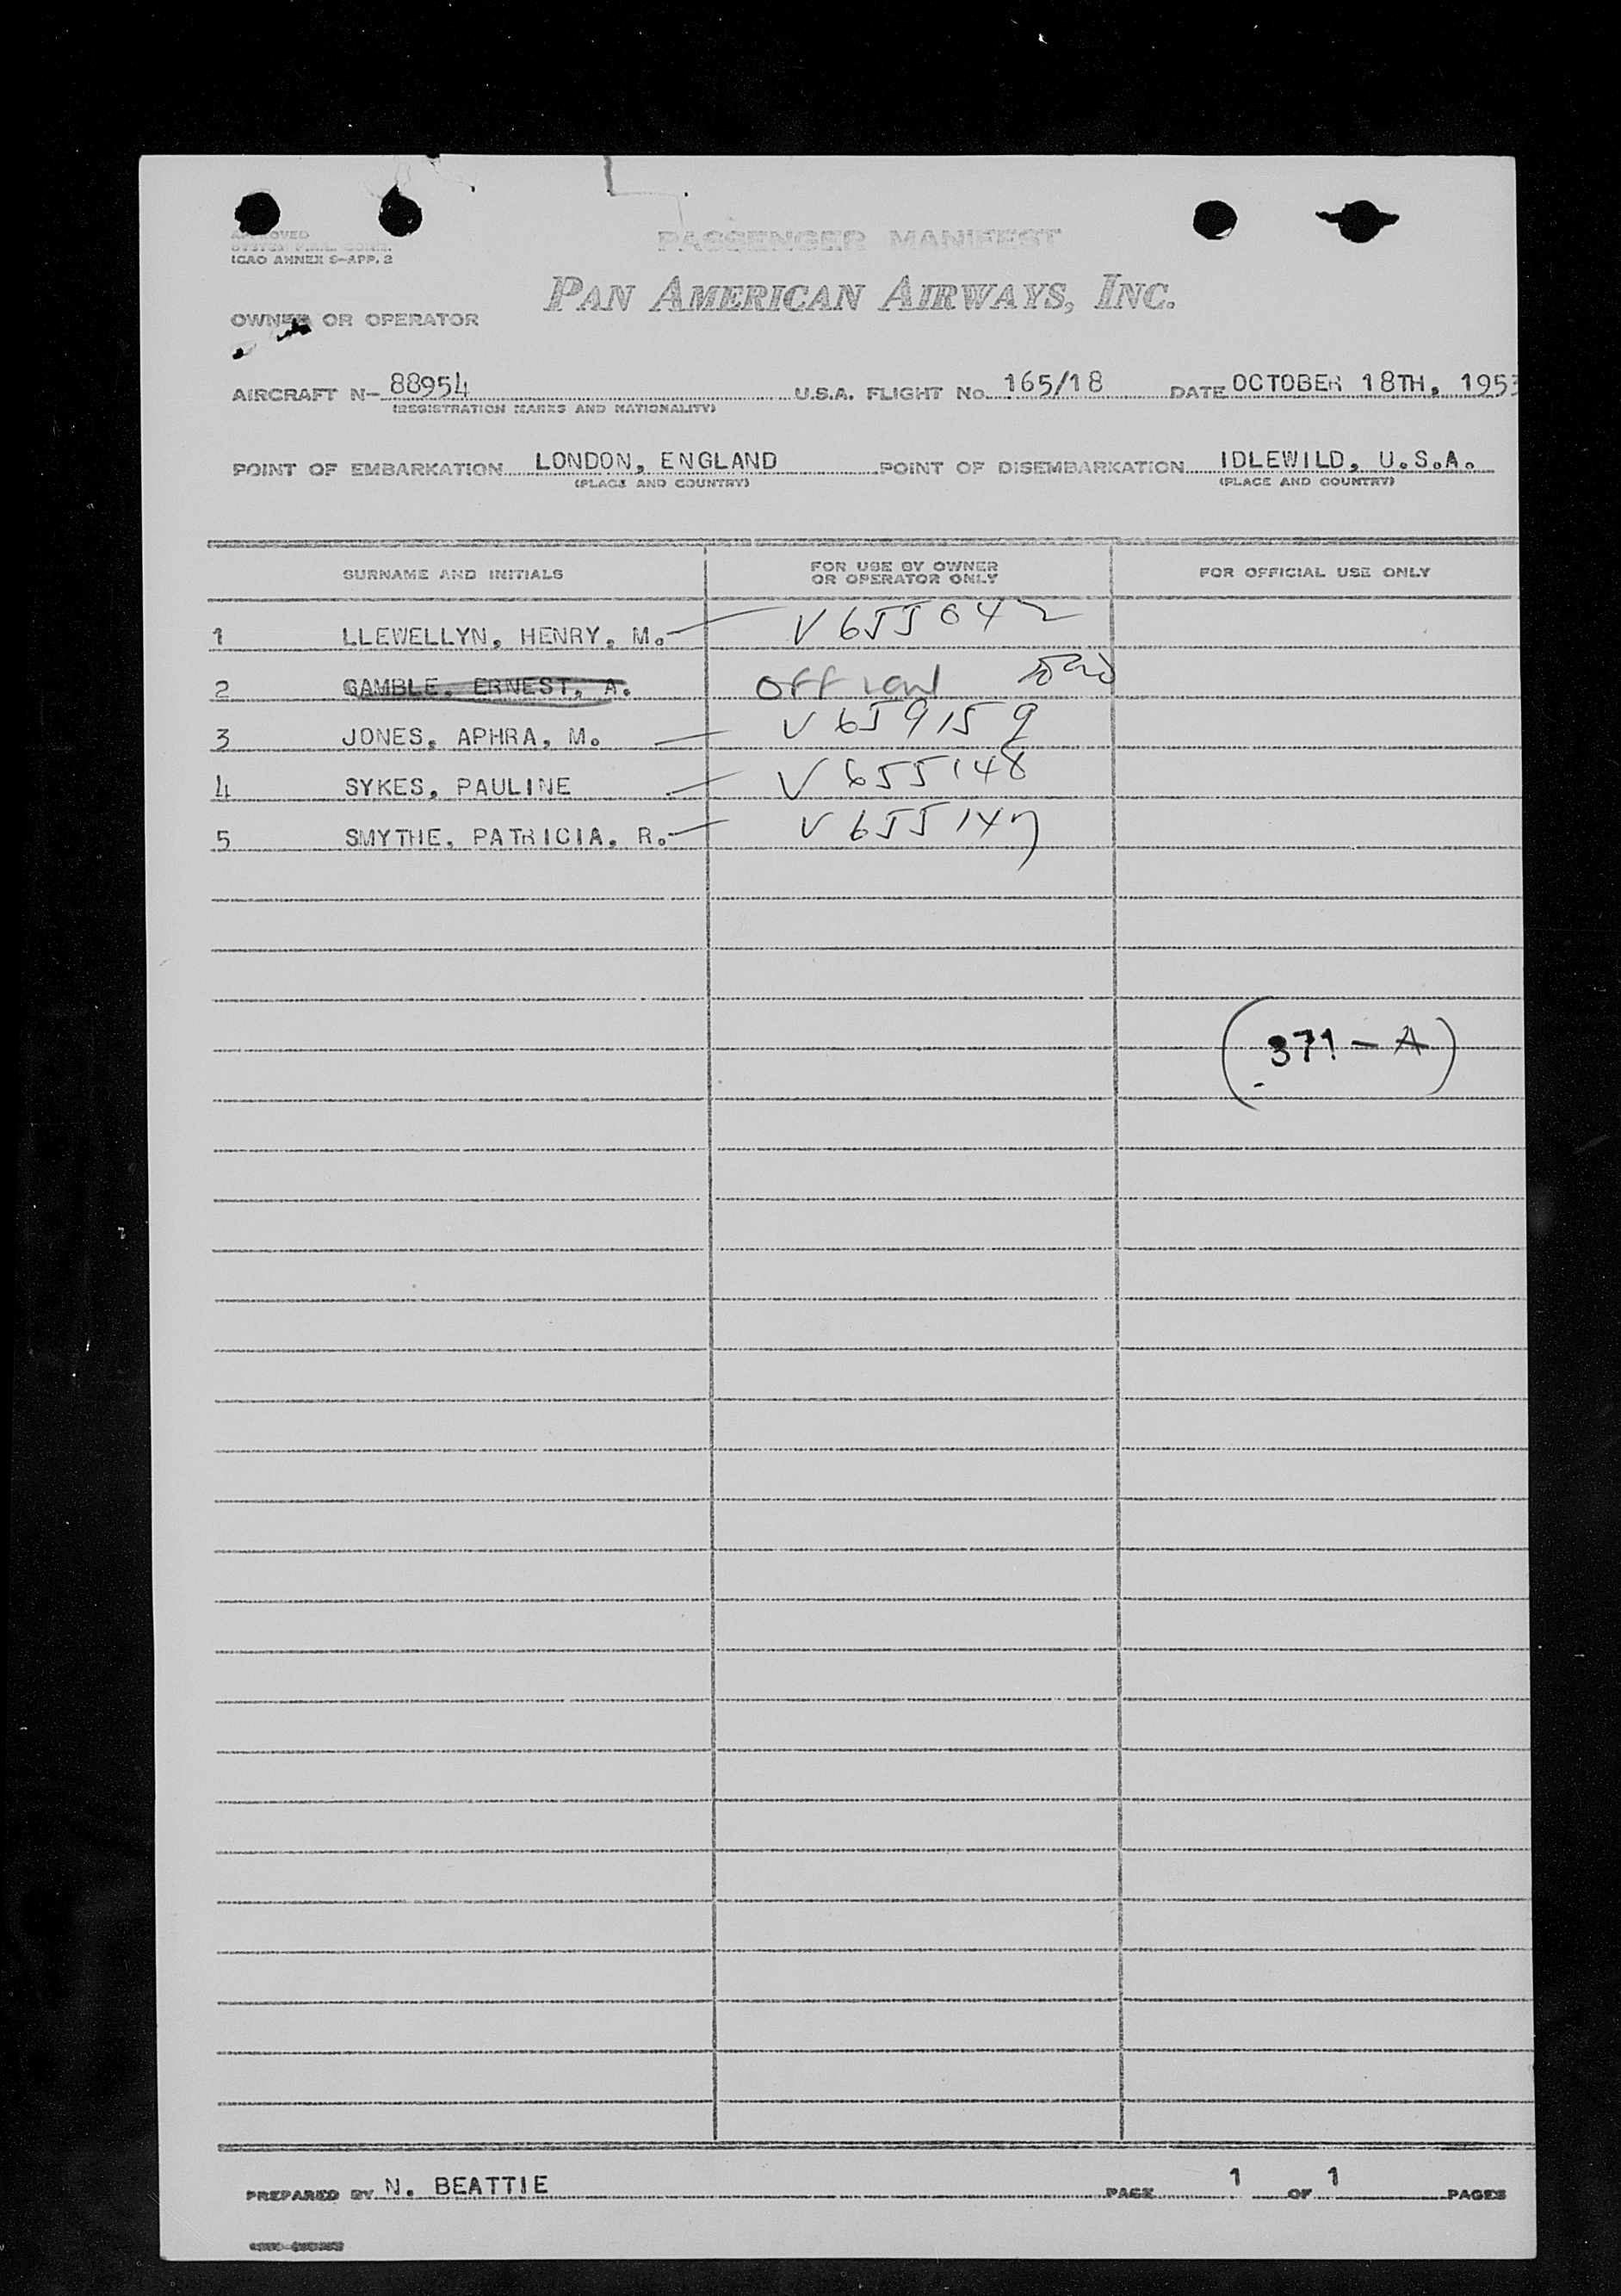 PASSENGER MANIFEST
APPROVED
ICAO ANNEX 9-APP. 2
PAN AMERICAN AIRWAYS, INC.
OWNER OR OPERATOR
AIRCRAFT N- 88954 U.S.A. FLIGHT NO. 165/18 DATE OCTOBER 18TH, 1953
(REGISTRATION MARKS AND NATIONALITY)
POINT OF EMBARKATION LONDON, ENGLAND POINT OF DISEMBARKATION IDLEWILD, U.S.A.
(PLACE AND COUNTRY) (PLACE AND COUNTRY)
SURNAME AND INITIALS FOR USE BY OWNER OR OPERATOR ONLY FOR OFFICIAL USE ONLY
1 LLEWELLYN, HENRY, M. V655042
2 GAMBLE, ERNEST, A.
3 JONES, APHRA, M. V659159
4 SYKES, PAULINE V655148
5 SMYTHE, PATRICIA, R. V655147
(371-A)
PREPARED BY N. BEATTIE PAGE 1 OF 1 PAGES